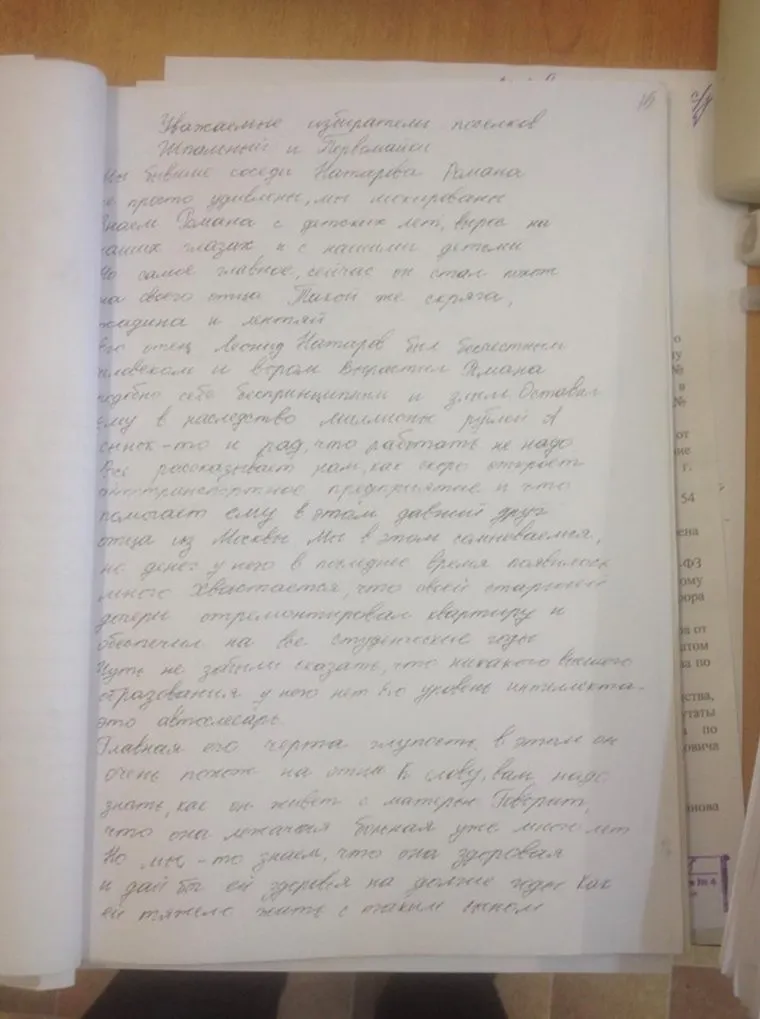 16
Уважаемые избиратели поселков
Шпальный и Первомайки
Мы бывшие соседи Натарова Романа
не просто удивлены, мы шокированы
Знаем Романа с детских лет, вырос на
наших глазах и с нашими детьми
Но самое главное, сейчас он стал похож
на своего отца Такой же скряга,
жадина и лентяй
Его отец Леонид Натаров был бесчестным
человеком и вором Вырастил Романа
подобно себе беспринципным и злым Оставил
ему в наследство миллионы рублей А
сынок-то и рад, что работать не надо
Все рассказывает нам, как скоро откроет
автотранспортное предприятие и что
помогает ему в этом давний друг
отца из Москвы Мы в этом сомневаемся,
но денег у него в последнее время появилось
много Хвастается, что своей старшей
дочери отремонтировал квартиру и
обеспечил на все студенческие годы
Чуть не забыли сказать, что никакого высшего
образования у него нет Его уровень интеллекта-
это автослесарь
Главная его черта глупость, в этом он
очень похож на отца К слову, вам надо
знать, как он живет с матерью Говорит,
что она лежачая больная уже много лет
Но мы-то знаем, что она здоровая
и дай бы ей здоровья на долгие годы Как
ей тяжело жить с таким сыном
с/у
№
в
№
от
г.
54
-ФЗ
ому
от
по
ства,
путаты
по
овича